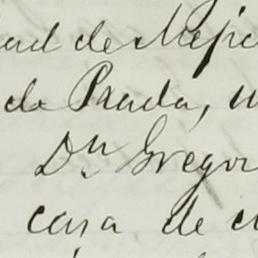 dad de Mejic
de Prada, u
Dn Gregor
casa de c